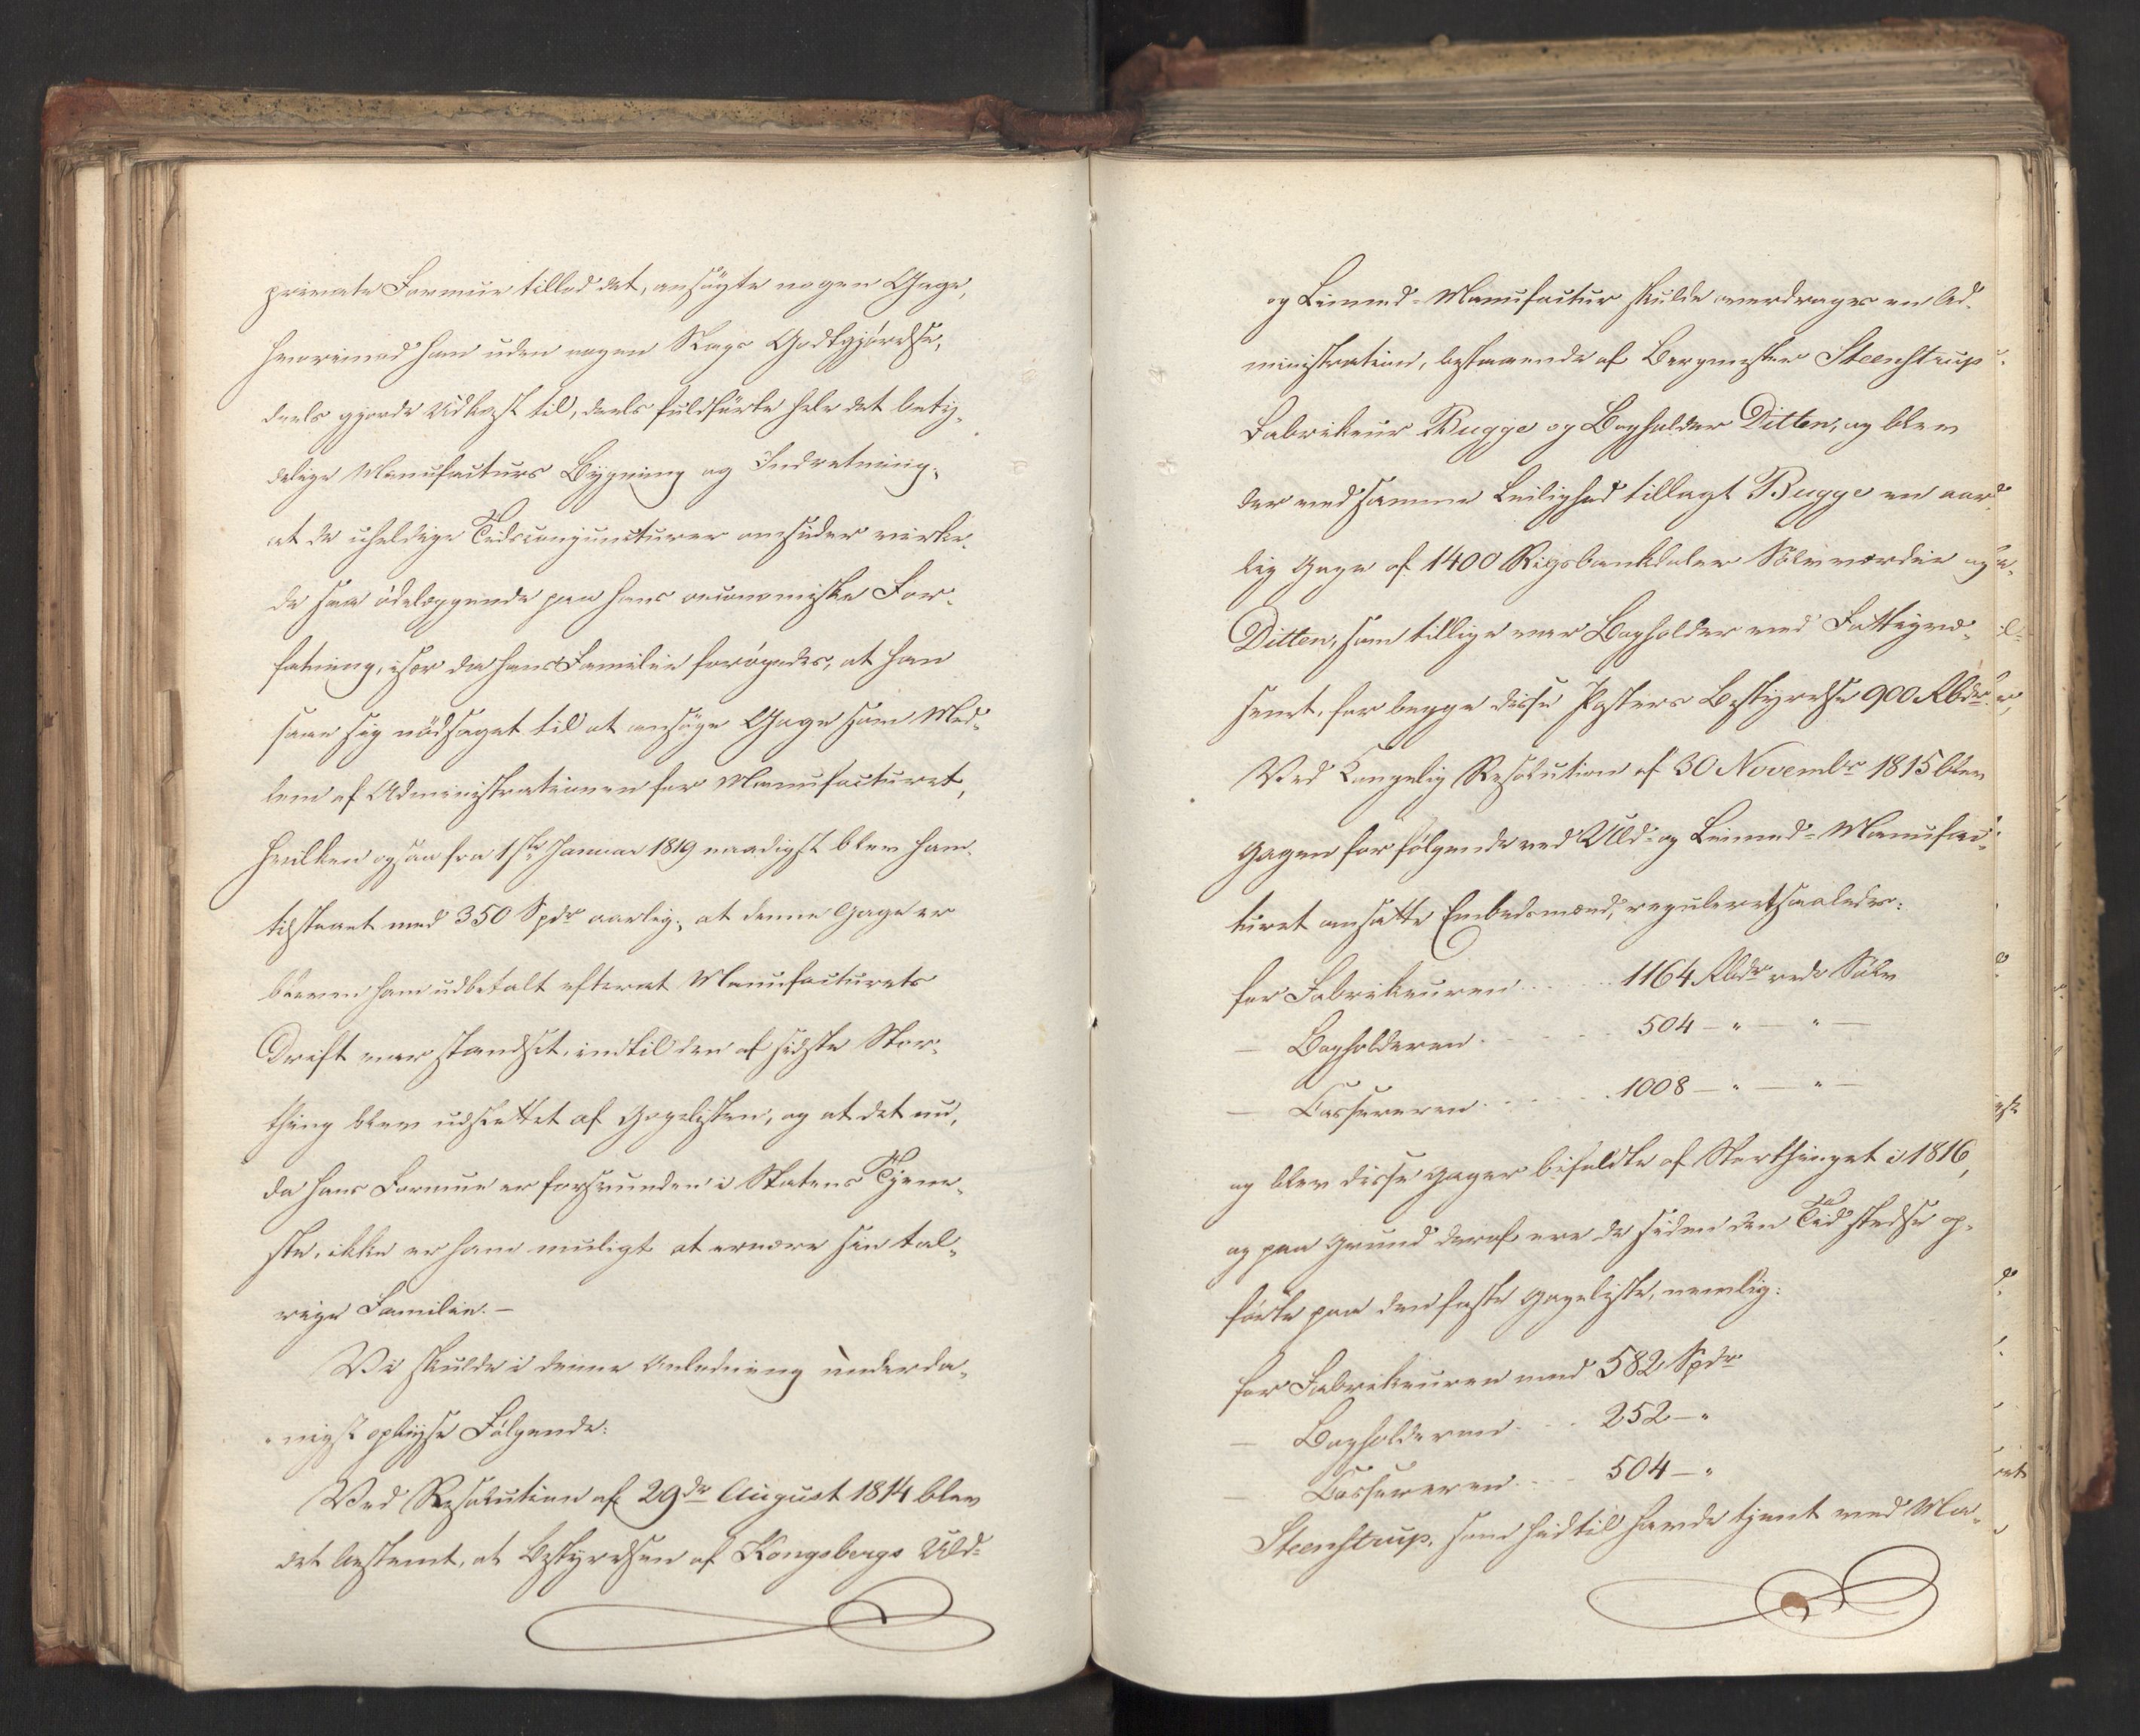 private Formue tillod det, ansøgte nogen Gage,
hvorimod han uden nogen Slags Godtgjørelse,
deels gjorde Udkast til, deels fuldførte hele det bety-
delige Manufacturs Bygning og Indretning;
at de uheldige Tidsconjuncturer omsider virke-
de saa ødelæggende paa hans oeconomiske For-
fatning, især da hans Familie forøgedes, at han
saae sig nødsaget til at ansøge Gage som Med-
lem af Administrationen for Manufacturet,
hvilken ogsaa fra 1ste Januar 1819 naadigst blev ham
tilstaaet med 350 Spdr aarlig; at denne Gage er
bleven ham udbetalt efterat Manufacturets
Drift var standset, indtil den af sidste Stor-
thing blev udslettet af Gagelisten, og at det nu,
da hans Formue er forsvunden i Statens Tjene-
ste, ikke er ham muligt at ernære sin tal-
rige Familie. –
Vi skulde i denne Anledning underda-
nigst oplyse Følgende:
Ved Resolution af 29de August 1814 blev
det bestemt, at Bestyrelsen af Kongsbergs Uld-
og Linned-Manufactur skulde overdrages en Ad-
ministration, bestaaende af Bergmester Steenstrup
Fabrikeur Bugge og Bogholder Ditten, og blev
der ved samme Leilighed tillagt Bugge en aar-
lig Gage af 1400 Rigsbankdaler Sølvværdie og
Ditten, som tillige var Bogholder ved Fattigvæ-
senet, for begge disse Posters Bestyrelse 900 Rbdr.
Ved Kongelig Resolution af 30 Novembr 1815 blev
Gagen for følgende ved Uld- og Linned-Manufac-
turet ansatte Embedsmænd, reguleret saaledes:
for Fabrikeuren . . . . . 1164 Rbdr rede Sølv
– Bogholderen . . . . . 504 – " – " –
– Cassereren . . . . . . 1008 – " – " –
og blev disse Gager bifaldte af Storthinget i 1816,
og paa Grund deraf ere de siden den Tid stedse op-
førte paa den faste Gageliste, nemlig:
for Fabrikeuren med 582 Spdr
– Bogholderen . . . 252 – "
– Cassereren . . . 504 – "
Steenstrup, som hidtil havde tjent ved Ma-